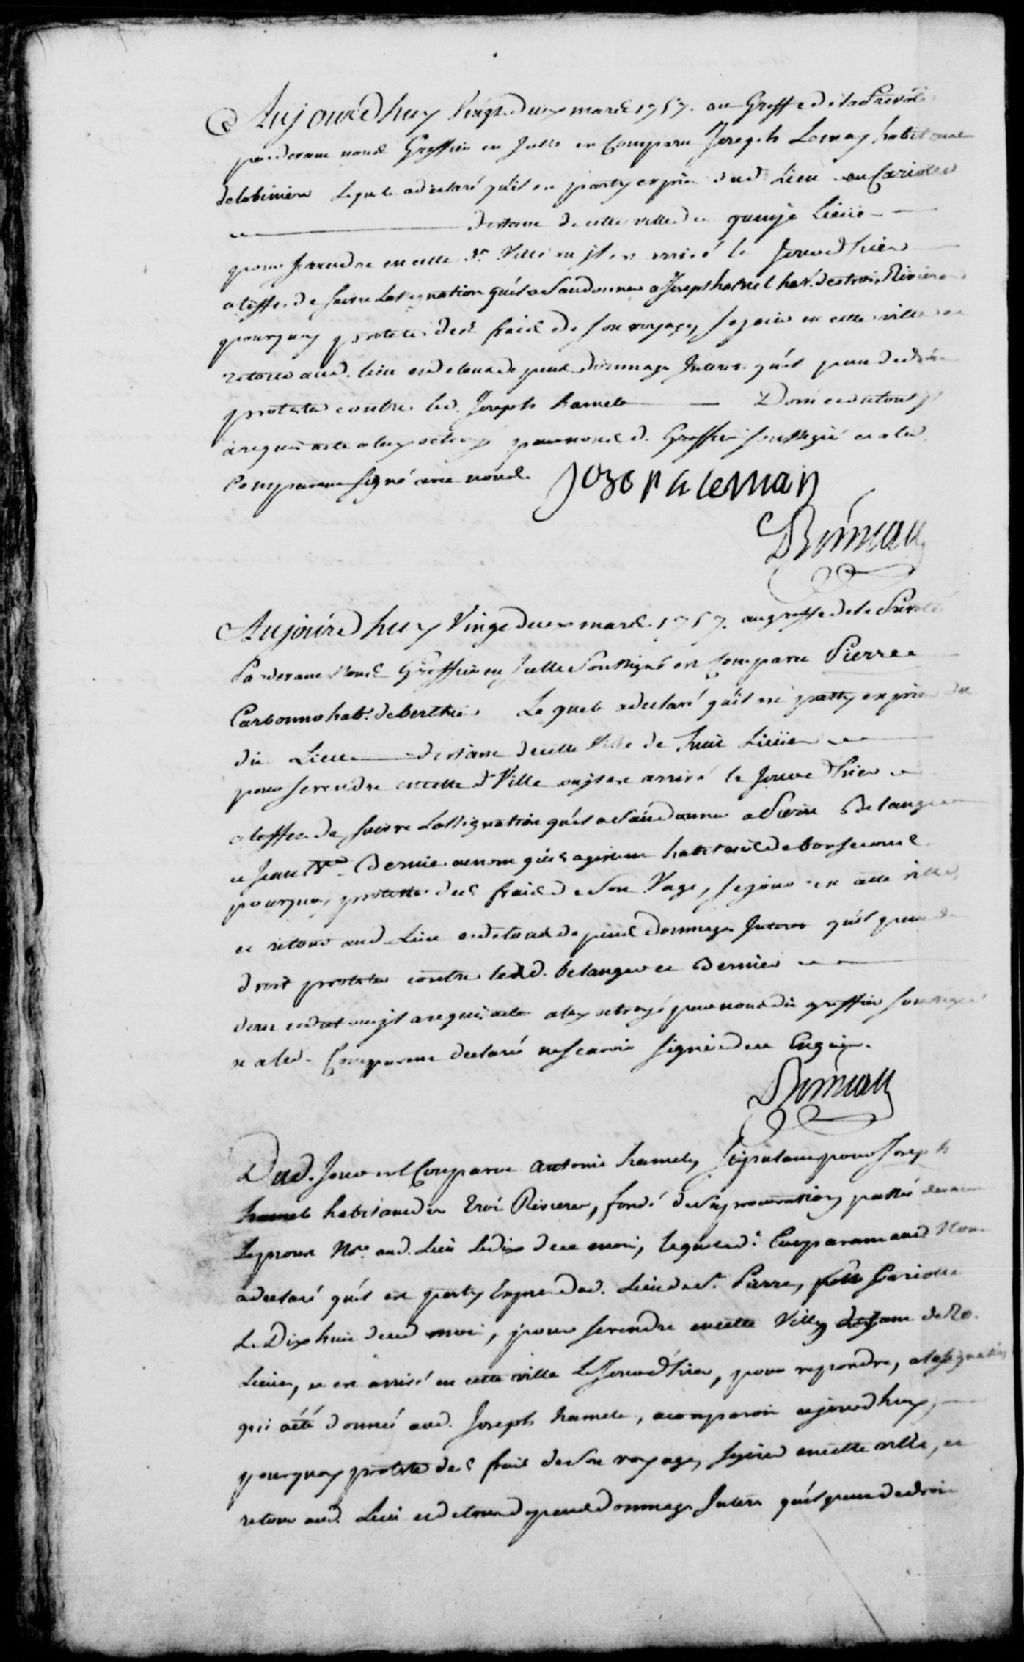 Aujourd'huy Vingt deux mars 1757. au Greffe de la Prevôté
pardevant nous Greffier en Icelle en Comparu Joseph Lemay habitant
de lobiniere Lequel a declaré quil en party expres dud. Lieu en Cariolle
distant de cette ville de quinze Lieüe
pour se rendre en cette d. Ville ou il est arrivé le Jour d'hier
a leffet de suivre Lassignation quil a fait donner a Joseph hamel hab. des trois Rivieres
pourquoy proteste des frais de son voyage, sejour en cette ville et
retour aud. lieu et de tous depens dommage Interest quil peut de droit
protester contre led. Joseph hamel Dont et de tout il
a requis acte a luy octroyé par nous d. Greffier soussigné et a led.
Comparant signé avec nous.
JozepH lemay
Boisseau
Aujourd'huy Vingt deux mars 1757. au greffe de la Prevôté
Pardevant Nous Greffier en Icelle soussigné est Comparu Pierre
Carbonno hab. de berthier Lequel a declaré quil est party expres du
dit Lieu distant de cette Ville de huit Lieües
pour se rendre en cette d. Ville ou il est arrivé le Jour d'hier
a leffet de suivre Lassignation quil a fait donner a Pierre Belanger
et Jean Bernier au nom quils agissent habitans de bonsecours
pourquoy proteste des frais de son Voyage, sejour en cette ville,
et retour aud. Lieu et de tous depens dommage Interest quil peut de
droit protester contre lesd. belanger et Bernier
dont et de tout il a requis acte a luy octroyé par nous dit greffier soussigné
et a led. Comparant declaré ne scavoir signer de ce Enquis.
Boisseau
Dud. Jour est Comparu Antoine hamel, stipulant pour Joseph
hamel habitant des trois Rivieres, fondé de sa procuration passée devant
Lepronn Nre. aud. Lieu Le dix de ce mois, lequel d. Comparant aud. Nom
a declaré quil est party Expres dud. Lieu de St. Pierre, en Cariolle
Le Dix huit dud. mois, pour se rendre en cette Ville, distant de 20.
Lieües, et est arrivé en cette ville Le Jour d'hier, pour repondre, a lassignation
qui a été donnée aud. Joseph hamel, a comparoir ce jourd'huy,
pourquoy proteste des frais de son voyage, sejour en cette ville, et
retour aud. Lieu et de tous depens dommage Interest quil peut de droit